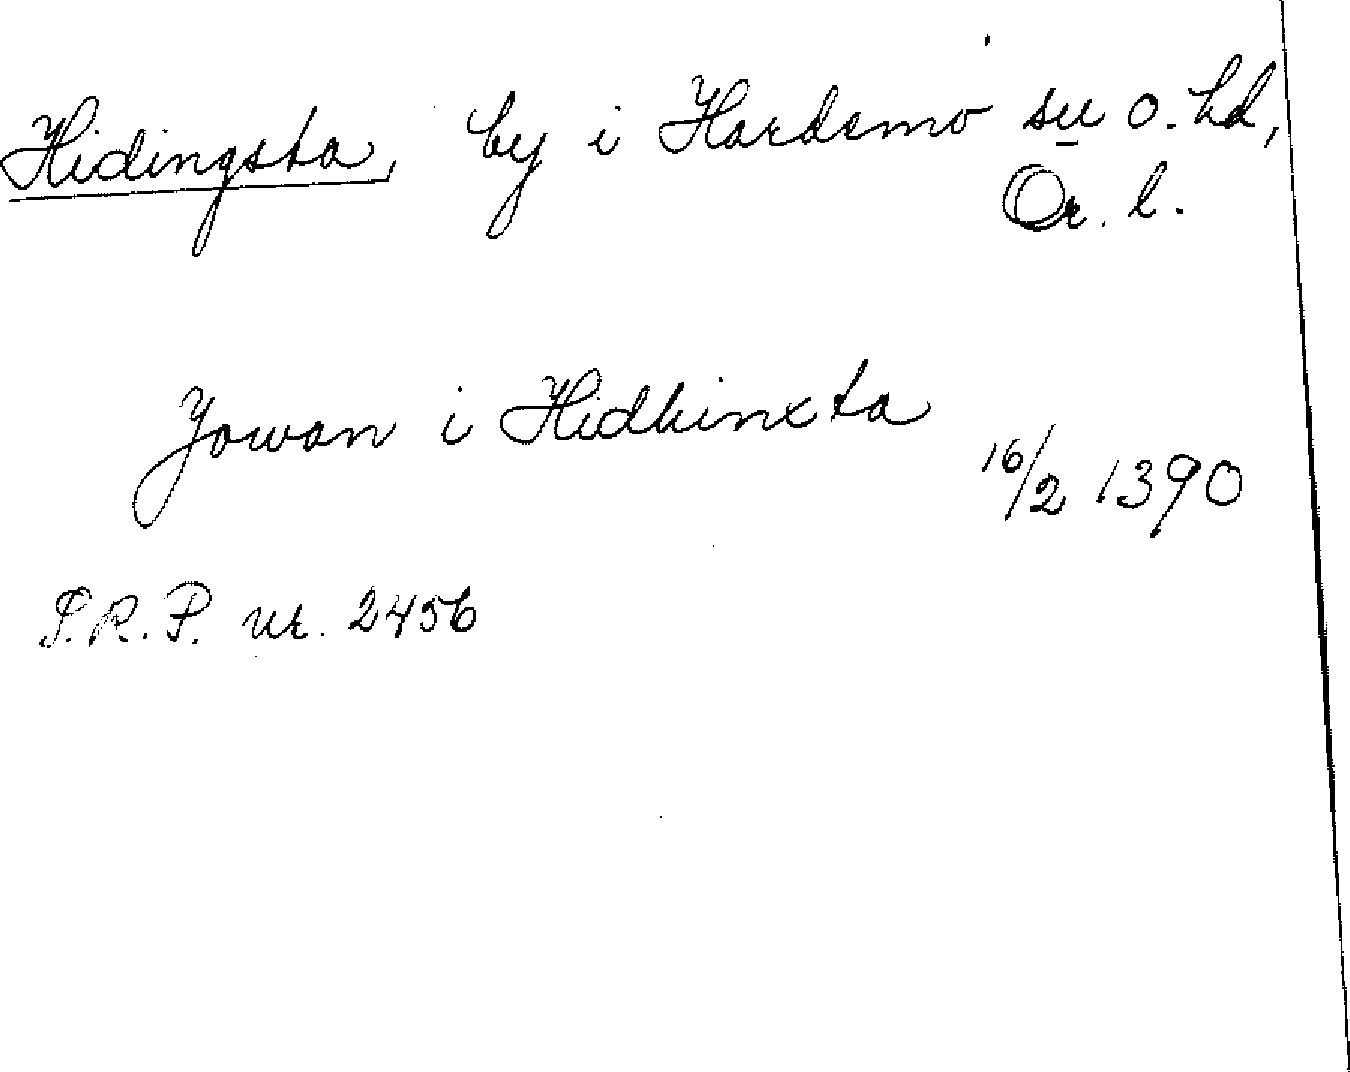 Hidingsta, by i Hardemo sn o. hd,
Ör. l.
Jowan i Hidhinxta
16/2 1390
S.R.P. nr. 2456